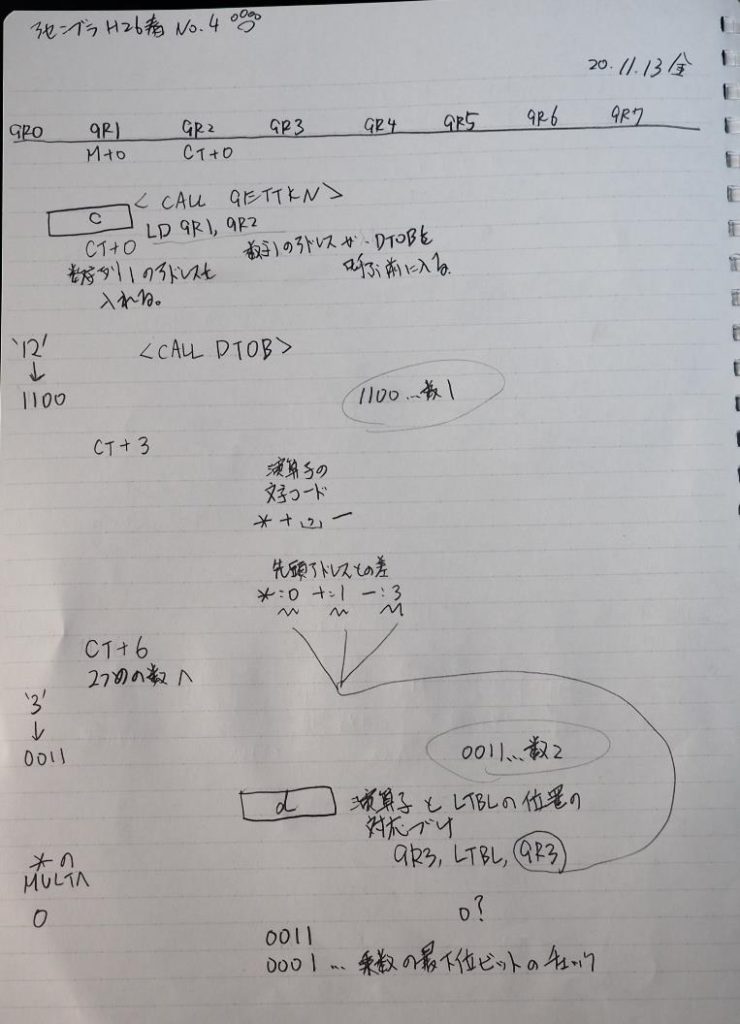 アセンブラ H26春 No.4
20.11.13 金
GR0 GR1 GR2 GR3 GR4 GR5 GR6 GR7
M+0 CT+0
<CALL GETTKN>
C LD GR1, GR2
CT+0 数字1のアドレスが DTOBを
数字列1のアドレスを 呼ぶ前に入る。
入れる。
'12' <CALL DTOB>
↓
1100 1100…数1
CT+3
演算子の
文字コード
* + (,) -
先頭アドレスとの差
*:0 +:1 -:3
CT+6
2つめの数へ
'3'
↓
0011 0011…数2
d 演算子とLTBLの位置の
対応づけ
GR3, LTBL, GR3
*の
MULTへ
0 0?
0011
0001…乗数の最下位ビットのチェック